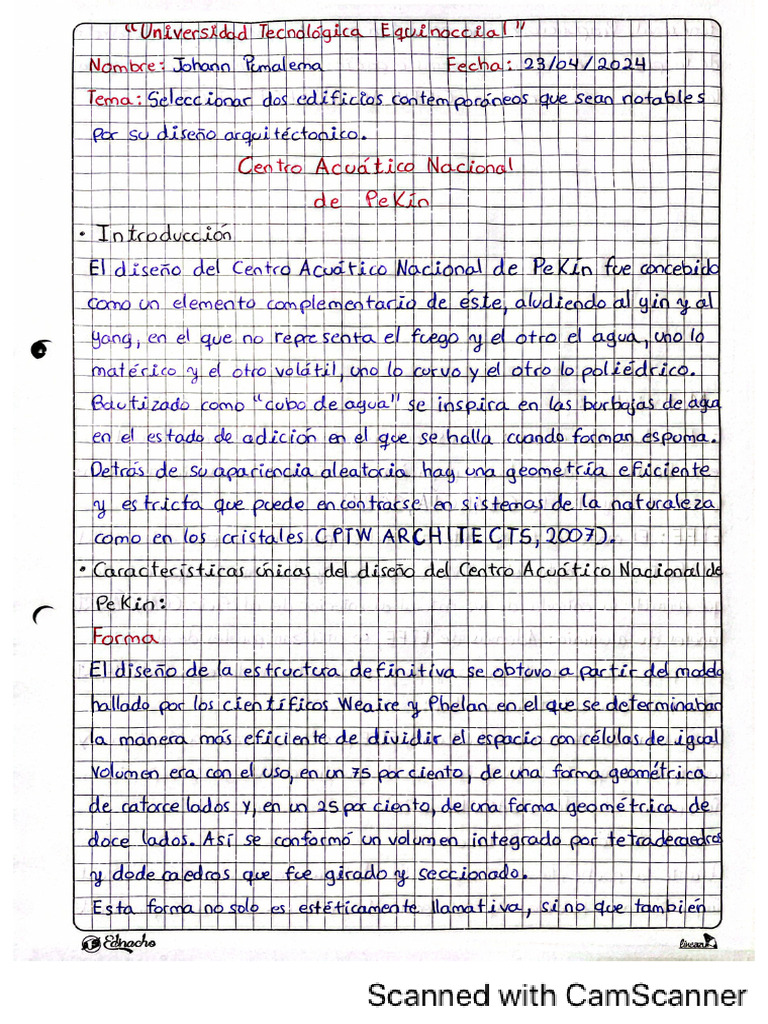 "Universidad Tecnológica Equinoccial"
Nombre: Johann Pumalema Fecha: 23/04/2024
Tema: Seleccionar dos edificios contemporáneos que sean notables
por su diseño arquitéctonico.
Centro Acuático Nacional
de Pekín
• Introducción
El diseño del Centro Acuático Nacional de Pekín fue concebido
como un elemento complementario de éste, aludiendo al yin y al
yang, en el que no representa el fuego y el otro el agua, uno lo
matérico y el otro volátil, uno lo curvo y el otro lo poliédrico.
Bautizado como "cubo de agua" se inspira en las burbujas de agua
en el estado de adición en el que se halla cuando forman espuma.
Detrás de su apariencia aleatoria hay una geometría eficiente
y estricta que puede encontrarse en sistemas de la naturaleza
como en los cristales CPTW ARCHITECTS, 2007).
• Características únicas del diseño del Centro Acuático Nacional de
Pekin:
Forma
El diseño de la estructura definitiva se obtuvo a partir del modelo
hallado por los científicos Weaire y Phelan en el que se determinaban
la manera más eficiente de dividir el espacio con células de igual
volumen era con el uso, en un 75 por ciento, de una forma geométrica
de catorce lados y, en un 25 por ciento, de una forma geométrica de
doce lados. Así se conformó un volumen integrado por tetradecaedros
y dodecaedros que fue girado y seccionado.
Esta forma no solo es estéticamente llamativa, sino que también
Ednacho linear
Scanned with CamScanner